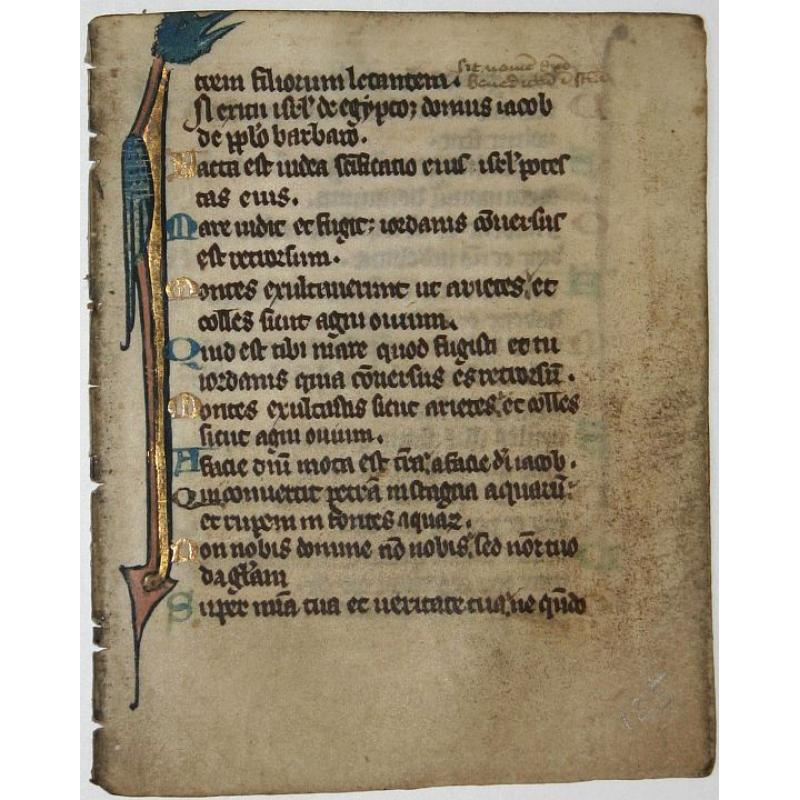 trem filiorum letantem.
sit nomen dni
benedictum
N exitu isrl' de egypto; domus iacob
de pplo barbaro.
Facta est iudea scificatio eius isrl' potes
tas eius.
Mare uidit et fugit; iordanis cōuersus
est retrorsum.
Montes exultauerunt ut arietes, et
colles sicut agni ouium.
Quid est tibi mare quod fugisti et tu
iordanis quia cōuersus es retrorsū.
Montes exultastis sicut arietes, et colles
sicut agni ouium.
A facie dni mota est tra, a facie di iacob.
Qui conuertit petrā in stagna aquarū:
et rupem in fontes aquaꝝ.
Non nobis domine nō nobis, sed noī tuo
da glam
Super mia tua et ueritate tua, ne qūdo
185